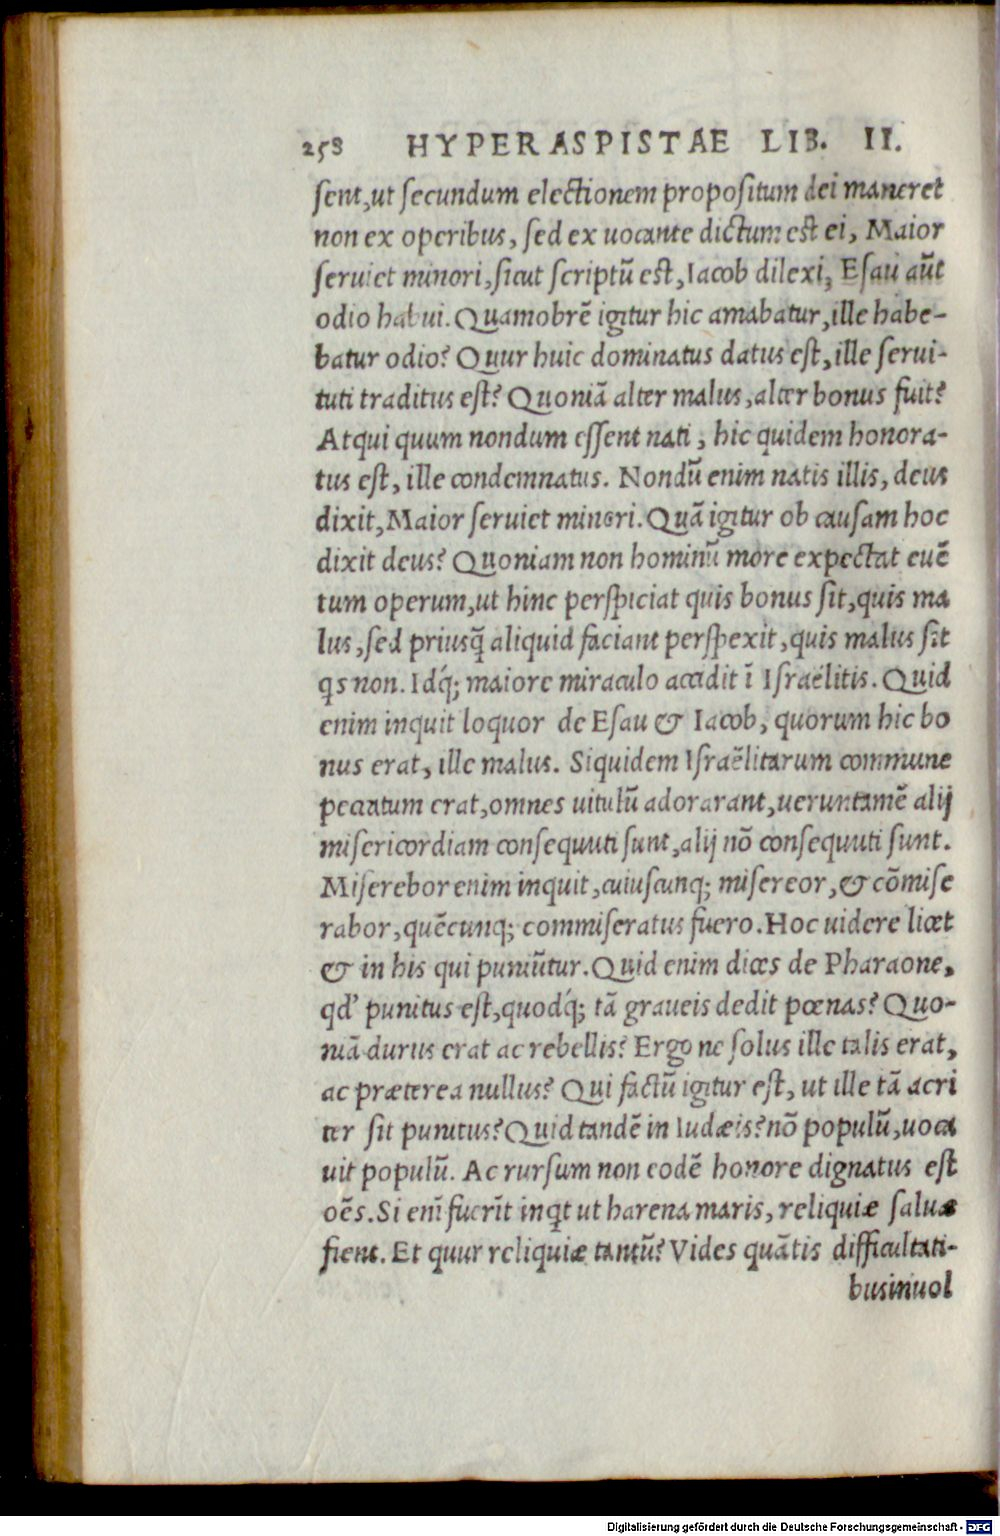 258 HYPERASPISTAE LIB. II.
sent, ut secundum electionem propositum dei maneret
non ex operibus, sed ex uocante dictum est ei, Maior
seruiet minori, sicut scriptū est, Iacob dilexi, Esau aūt
odio habui. Quamobrē igitur hic amabatur, ille habe-
batur odio? Quur huic dominatus datus est, ille serui-
tuti traditus est? Quoniā alter malus, alter bonus fuit?
Atqui quum nondum essent nati, hic quidem honora-
tus est, ille condemnatus. Nondū enim natis illis, deus
dixit, Maior seruiet minori. Quā igitur ob causam hoc
dixit deus? Quoniam non hominū more expectat euē
tum operum, ut hinc perspiciat quis bonus sit, quis ma
lus, sed priusq̄ aliquid faciant perspexit, quis malus sit
qs non. Idq́; maiore miraculo accidit ī Israëlitis. Quid
enim inquit loquor de Esau & Iacob, quorum hic bo
nus erat, ille malus. Siquidem Israëlitarum commune
peccatum erat, omnes uitulū adorarant, ueruntamē alij
misericordiam consequuti sunt, alij nō consequuti sunt.
Miserebor enim inquit, cuiuscunq; misereor, & cōmise
rabor, quēcunq; commiseratus fuero. Hoc uidere licet
& in his qui puniūtur. Quid enim dices de Pharaone,
qd' punitus est, quodq́; tā graueis dedit pœnas? Quo-
niā durus erat ac rebellis? Ergo ne solus ille talis erat,
ac præterea nullus? Qui factū igitur est, ut ille tā acri
ter sit punitus? Quid tandē in Iudæis? nō populū, uoca
uit populū. Ac rursum non eodē honore dignatus est
oēs. Si enī fuerīt inqt ut harena maris, reliquiæ saluæ
fient. Et quur reliquiæ tantū? Vides quātis difficultati-
businuol
Digitalisierung gefördert durch die Deutsche Forschungsgemeinschaft - DFG